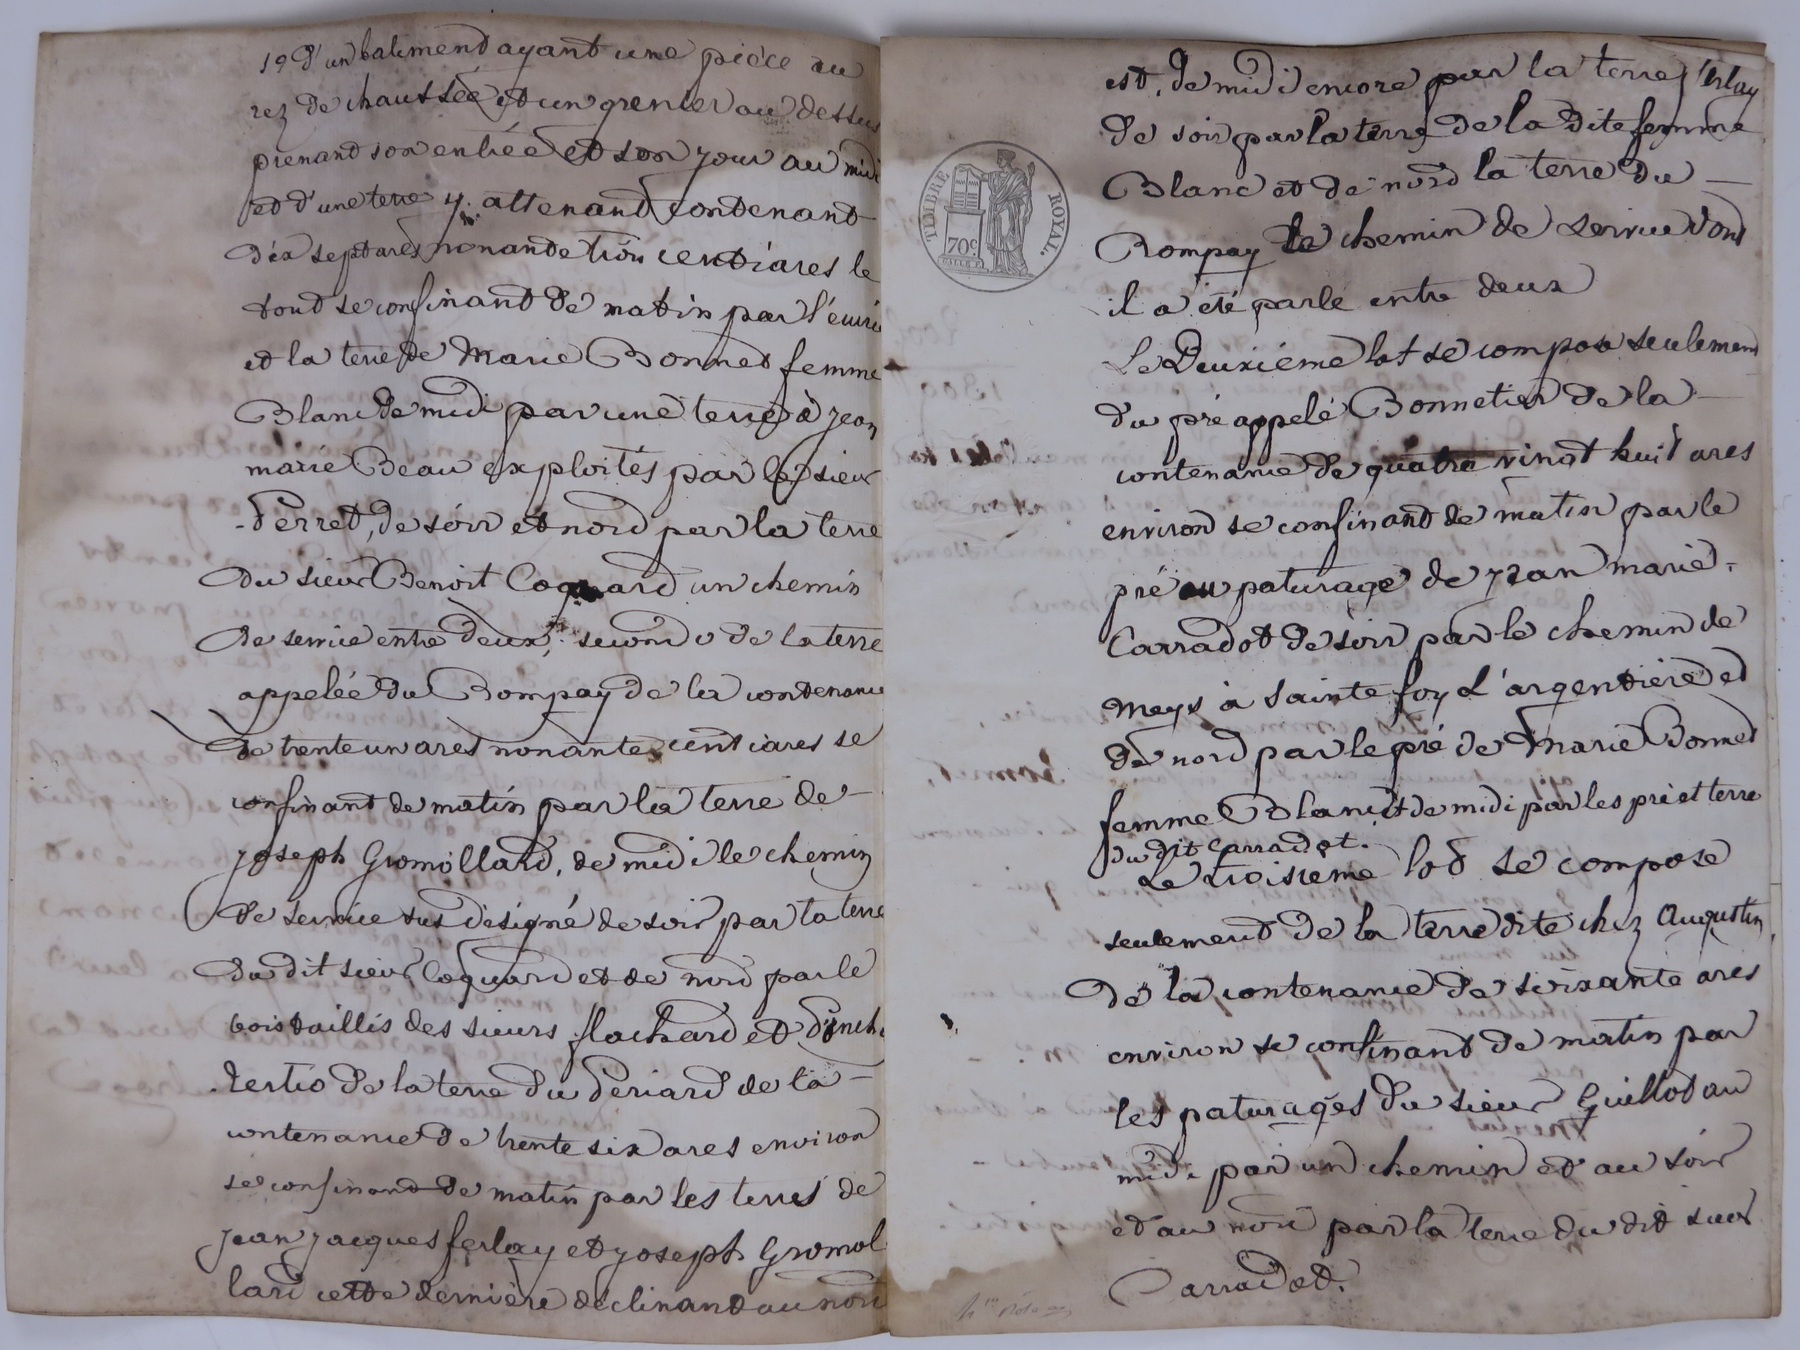 1º d'un batiment ayant une pièce au
rez de chaussée et un grenier au dessus
prenant son entrée et son jour au midi
et d'une terre y attenant contenant
dix sept ares nonante trois centiares le
tout se confinant de matin par l'écurie
et la terre de Marie Bonnet femme
Blanc de midi par une terre à jean
marie Beau exploités par le sieur
Perret, de soir et nord par la terre
du sieur Benoit Coquard un chemin
de service entre deux, secondo de la terre
appelée du Bompay de la contenance
de trente un ares nonante centiares se
confinant de matin par la terre de
joseph Gromollard, de midi le chemin
de service sus désigné de soir par la terre
du dit sieur Coquard et de nord par le
bois taillis des sieurs flachard et
tertio de la terre du Periard de la
contenance de trente six ares environ
se confinant de matin par les terres de
jean jacques ferlay et joseph Gromol
lard cette dernière déclinant au nord
est, de midi encore par la terre ferlay
de soir par la terre de la dite femme
Blanc et de nord la terre du
Bompay le chemin de service dont
il a été parlé entre deux
Le Deuxième lot se compose seulement
du pré appelé Bonnetier de la
contenance de quatre vingt huit ares
environ se confinant de matin par le
pré ou paturage de jean marie
Carradot de soir par le chemin de
Meys à Sainte foy L'argentière et
de nord par le pré de Marie Bonnet
femme Blanc et de midi par les pré et terre
du dit Carradot.
Le troisième lot se compose
seulement de la terre dite chez Augustin
de la contenance de soixante ares
environ se confinant de matin par
les paturages du sieur Guillot au
midi par un chemin et au soir
et au nord par la terre du dit sieur
Carradot.
TIMBRE ROYAL.
70c.